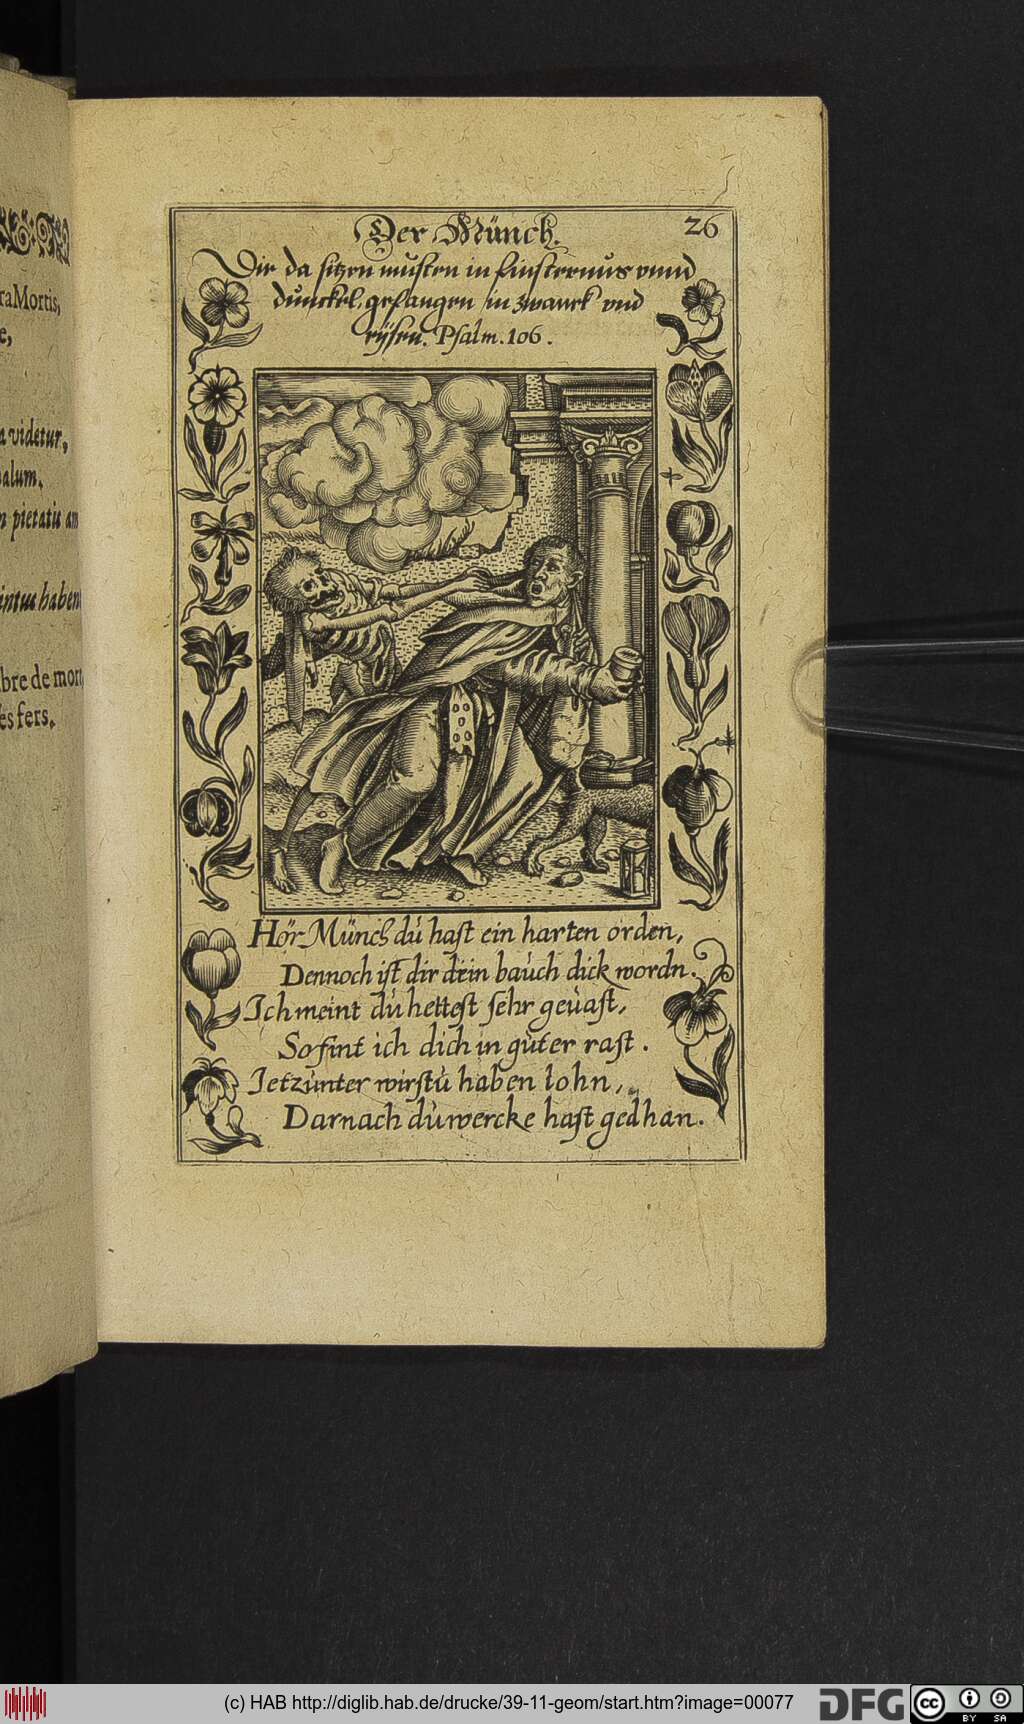 raMortis,
e,
a videtur,
alum.
n pietatis am
intus haben
bre de mort
es fers.
Der Münch. 26
Die da sitzen musten in finsternus vnnd
dunckel, gefangen in zwanck vnd
eÿsen. Psalm. 106.
Hör Münch du hast ein harten orden,
Dennoch ist dir dein bauch dick wordn.
Ich meint du hettest sehr gevast,
So fint ich dich in guter rast.
Ietzunter wirstu haben lohn,
Darnach du wercke hast gedhan.
(c) HAB http://diglib.hab.de/drucke/39-11-geom/start.htm?image=00077
DFG
cc BY SA